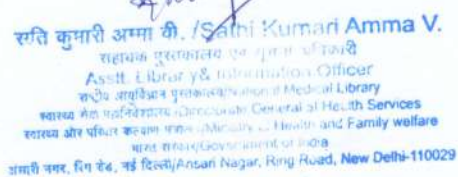 सति कुमारी अम्मा वी. /Sathi Kumari Amma V.
सहायक पुस्तकालय एवं सूचना अधिकारी
Asstt. Library & Information Officer
राष्ट्रीय आयुर्विज्ञान पुस्तकालय/National Medical Library
स्वास्थ्य सेवा महानिदेशालय/Directorate General of Health Services
स्वास्थ्य और परिवार कल्याण /Ministry of Health and Family welfare
भारत सरकार/Government of India
अंसारी नगर, रिंग रोड, नई दिल्ली/Ansari Nagar, Ring Road, New Delhi-110029